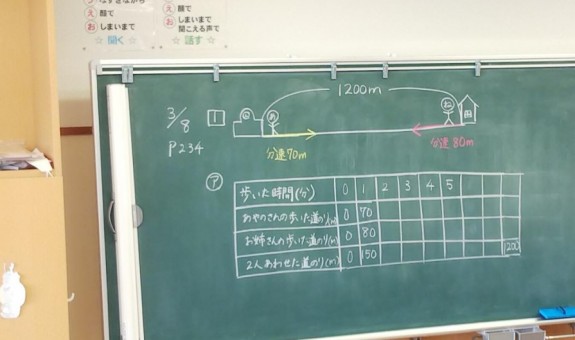 え 顔で
お しまいまで
☆ 聞く ☆
え 顔で
お しまいまで
聞こえる声で
☆ 話す ☆
1200m
3/8 1
P234
分速70m
分速80m
ア
歩いた時間(分) 0 1 2 3 4 5
あやのさんの歩いた道のり(m) 0 70
お姉さんの歩いた道のり(m) 0 80
2人あわせた道のり(m) 0 150 1200